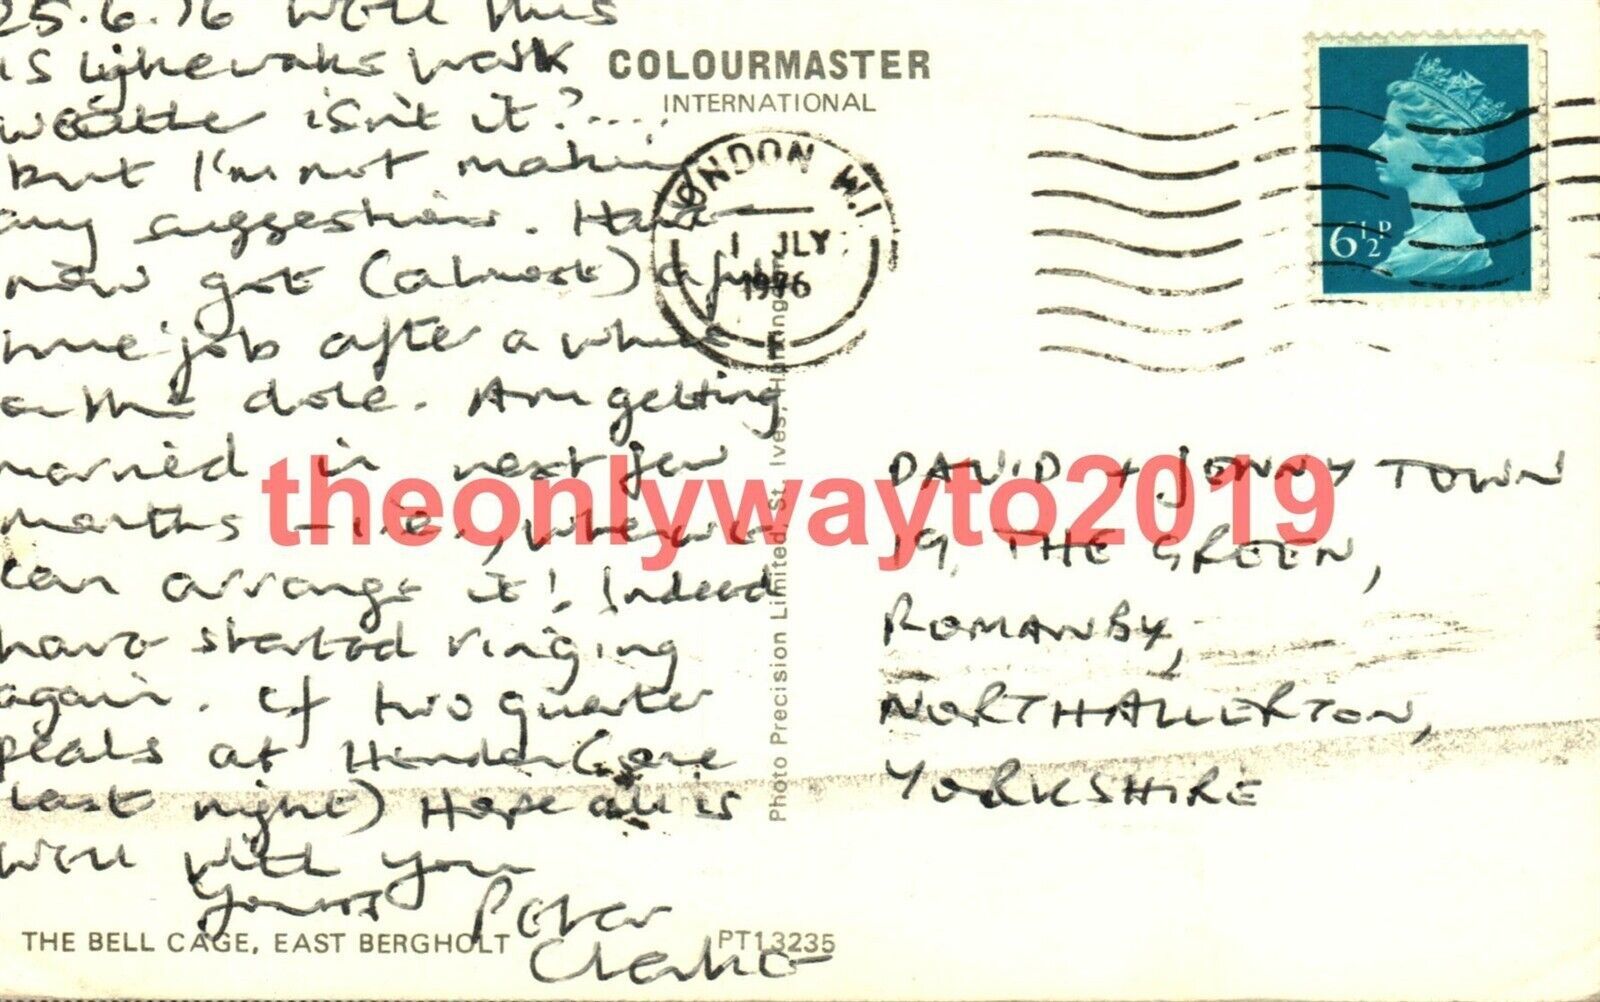 25.6.76 Well this
is Lyke Wake Walk
weather isn't it?....
but I'm not making
any suggestions. Have
now got (almost) a full
time job after a while
on the dole. Am getting
married in next few
months - i.e., when we
can arrange it! Indeed
have started ringing
again. (If two quarter
peals at Hendon
last night) Hope all is
well with you
Yours Peter
COLOURMASTER
INTERNATIONAL
LONDON W.1
1 JLY
1976
6½P
Photo Precision Limited, St. Ives, Huntingdon
DAVID + JENNY TOWN
19, THE GREEN,
ROMANBY,
NORTHALLERTON,
YORKSHIRE
theonlywayto2019
THE BELL CAGE, EAST BERGHOLT
PT13235